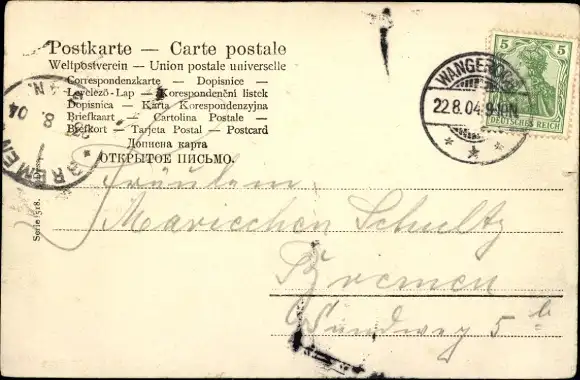 Postkarte — Carte postale
Weltpostverein — Union postale universelle
Correspondenzkarte — Dopisnice —
Levelező-Lap — Korespondenční listek
Dopisnica — Karta Korespondenzyjna
Briefkaart — Cartolina Postale —
Brefkort — Tarjeta Postal — Postcard
Дописна карта
ОТКРЫТОЕ ПИСЬМО.
WANGEROOG
22.8.04.9-10N.
5 5
DEUTSCHES REICH
BREMEN
8.
04
Serie 518.
Fräulein
Mariechen Schultz
Bremen
5 b